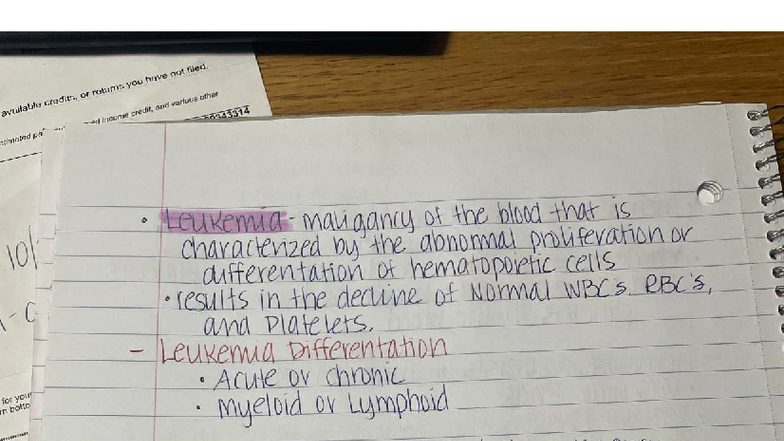 available credits, or returns you have not filed.
estimated pa
ed income credit, and various other
10/
• Leukemia - maligancy of the blood that is
characterized by the abnormal proliferation or
differentation of hematopoietic cells
• results in the decline of Normal WBC's, RBC's,
and Platelets.
- Leukemia Differentation
• Acute or chronic
• Myeloid or Lymphoid
for your